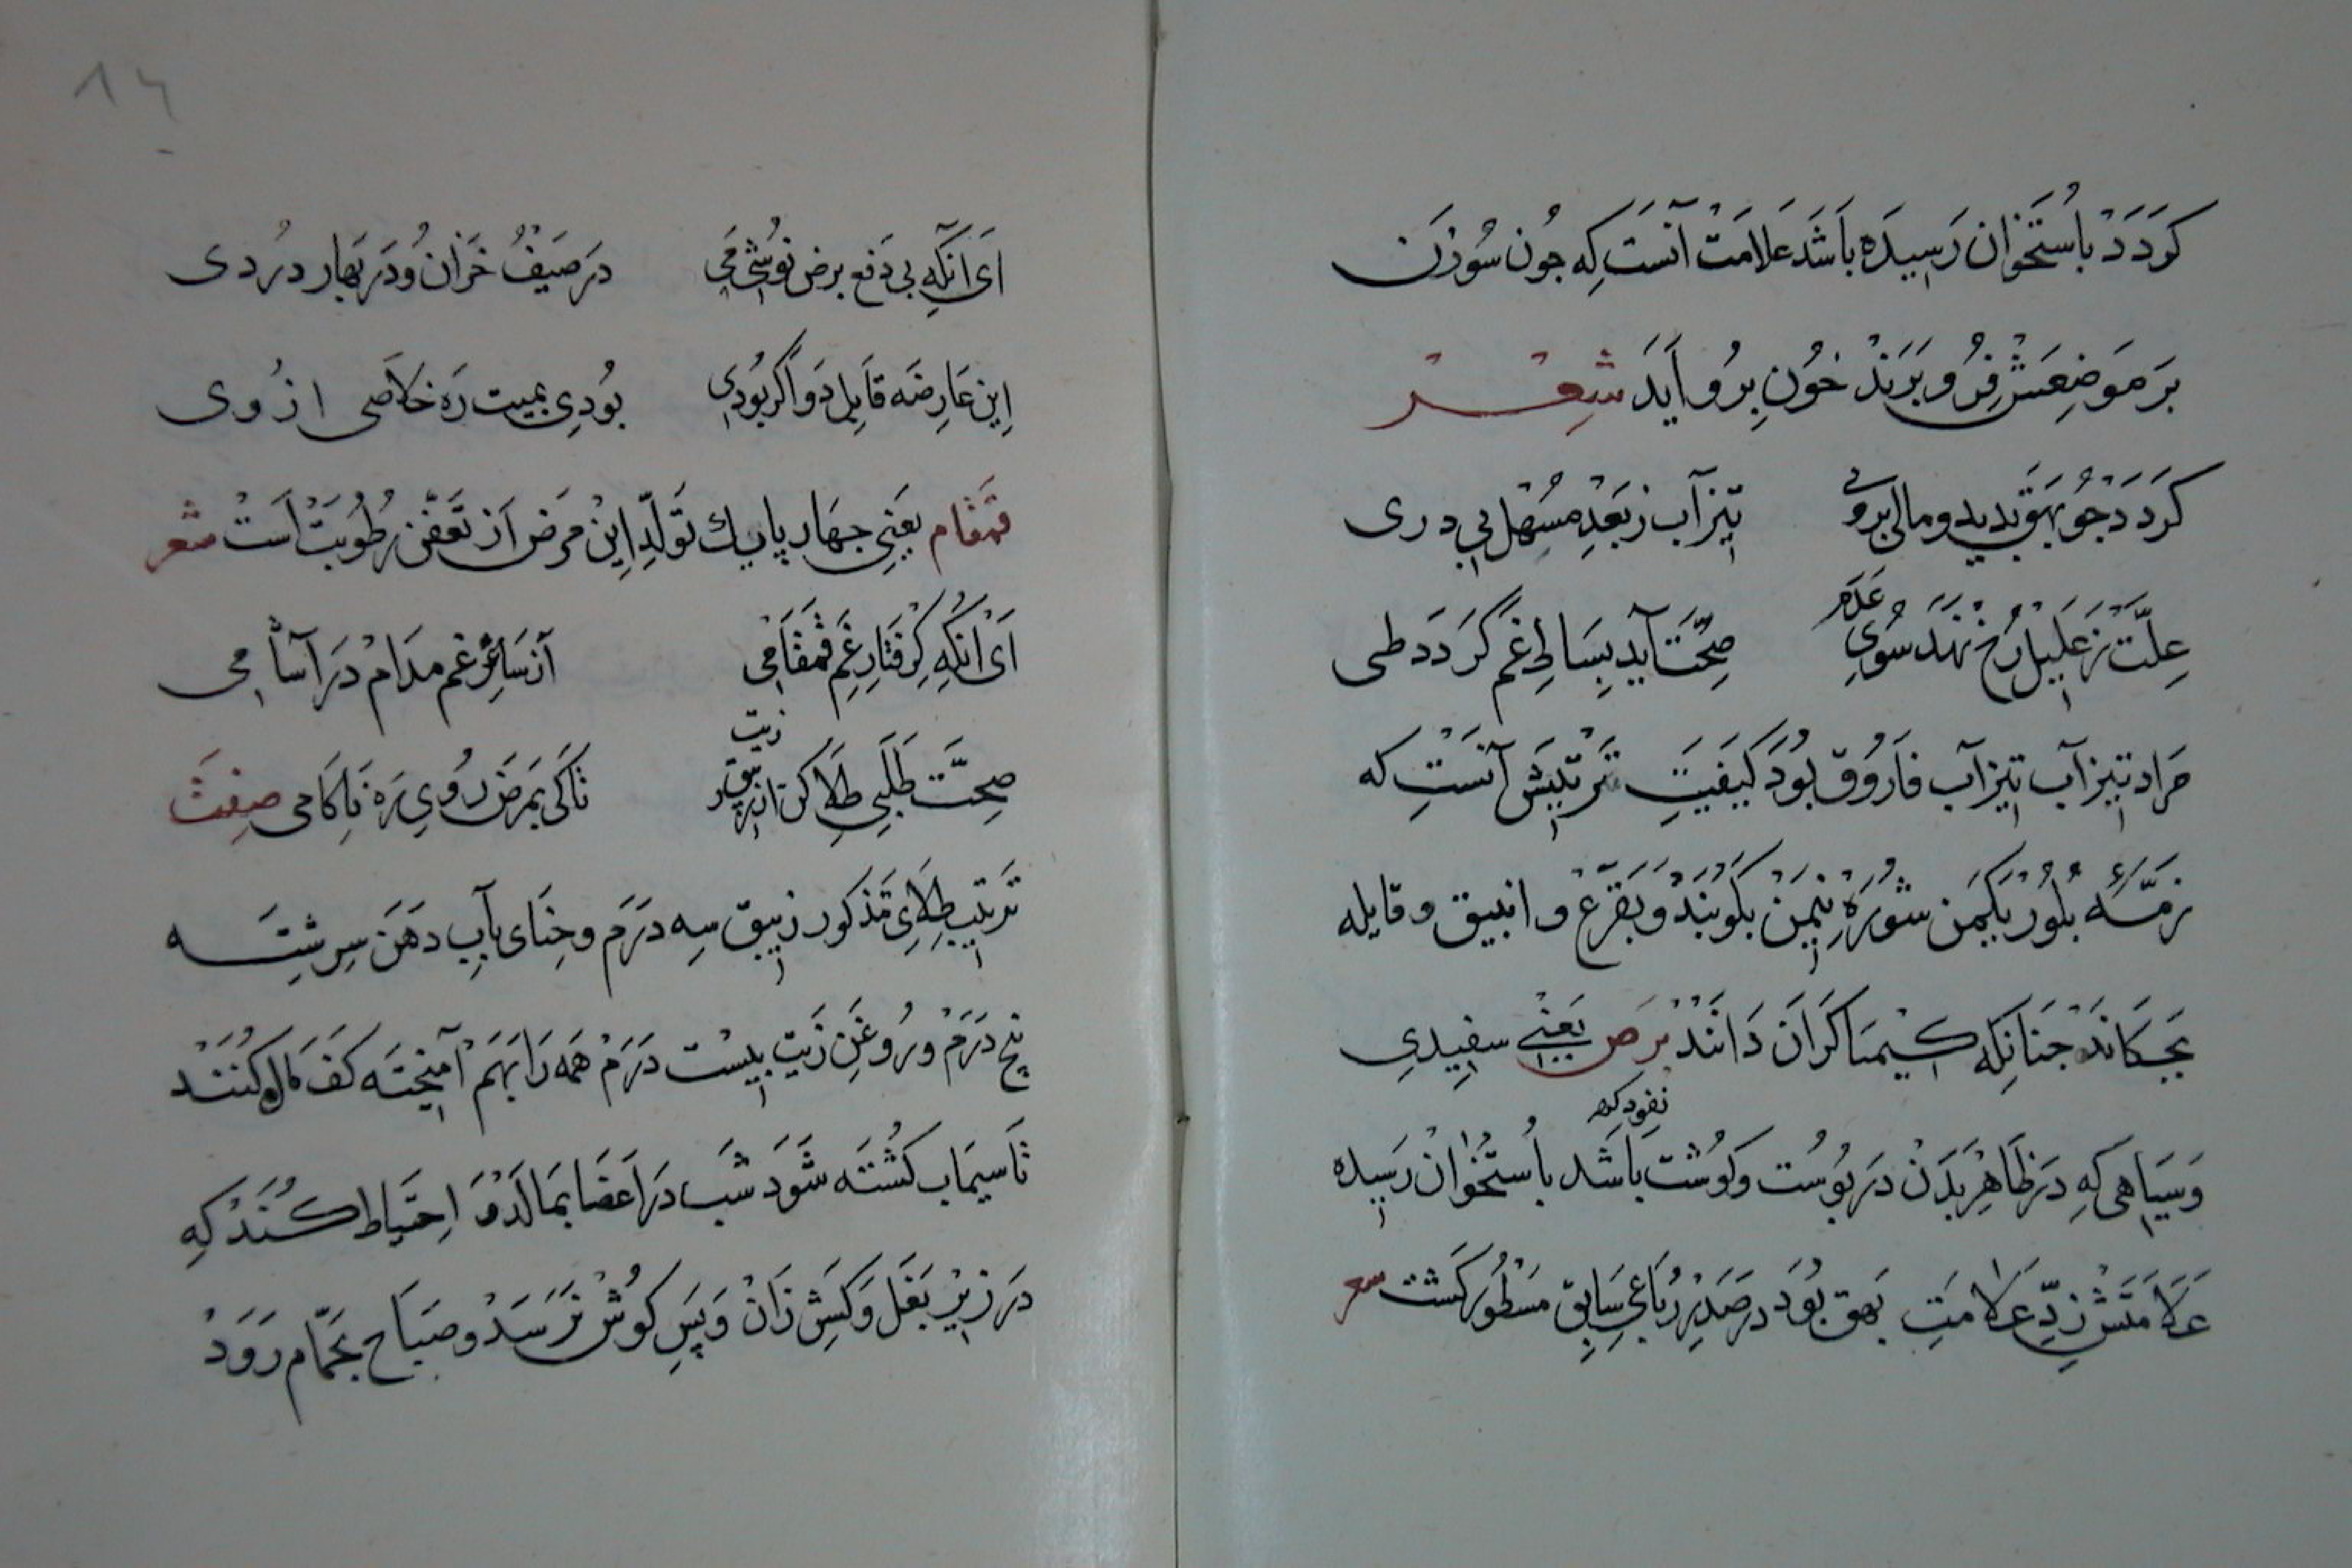 کردد باستخوان رسیده باشد علامت آنست که جون سوزن
بر موضعش فرو برند خون برو آید شعر
کردد جو بهق بدید و مالی بروی تیز آب ز بعد مسهل بی در بی
علت ز علیل رخ نهد سوی عدم صحت آید بساط غم کردد طی
مراد تیز آب تیز آب فاروق بود کیفیت ترتیبش آنست که
زمه بلور یکمن شوره نیمن بکوبند و بقرع و انبیق و قابله
بجکانند جنانکه کیمیاکران دانند برص یعنی سفیدی
نفود کرده
و سیاهی که در ظاهر بدن در بوست و کوشت باشد باستخوان رسیده
علامتش زد علامت بهق بود در صدر رباعی سابق مسطور کشت شعر
۱۶
ای آنکه بی دفع برص نوشی می در صیف خزان و در بهار در دی
این عارضه قابل دوا کر بودی بودی بمیت ره خلاصی از وی
قمقام یعنی جهار بایک تولد این مرض از تعفن رطوبت است شعر
ای آنکه کرفتار غم قمقامی از ساغر غم مدام درد آسامی
زیت
صحت طلبی طلا کن از زیبق تا کی بمرض روی ره ناکامی صفت
ترتیب طلای مذکور زیبق سه درم و حنای بآب دهن سرشته
پنج درم و روغن زیت بیست درم همه را بهم آمیخته کف مال کنند
تا سیماب کشته شود شب در اعضا بمالند و احتیاط کنند که
در زیر بغل و کش ران و پس کوش نرسد و صباح بحمام رود